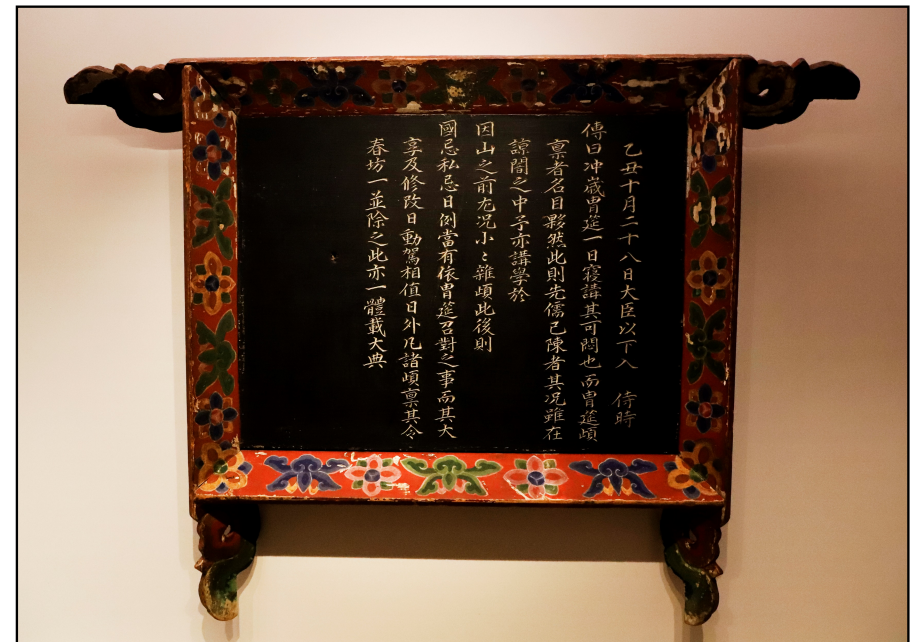 乙丑十月二十八日大臣以下入 侍時
傳曰冲歲胄筵一日寢講其可悶也而胄筵頉
稟者名目夥然此則先儒已陳者其況雖在
諒闇之中予亦講學於
因山之前尤況小〻雜頉此後則
國忌私忌日例當有依胄筵召對之事而其大
享及修改日動駕相值日外凡諸頉稟其令
春坊一並除之此亦一體載大典